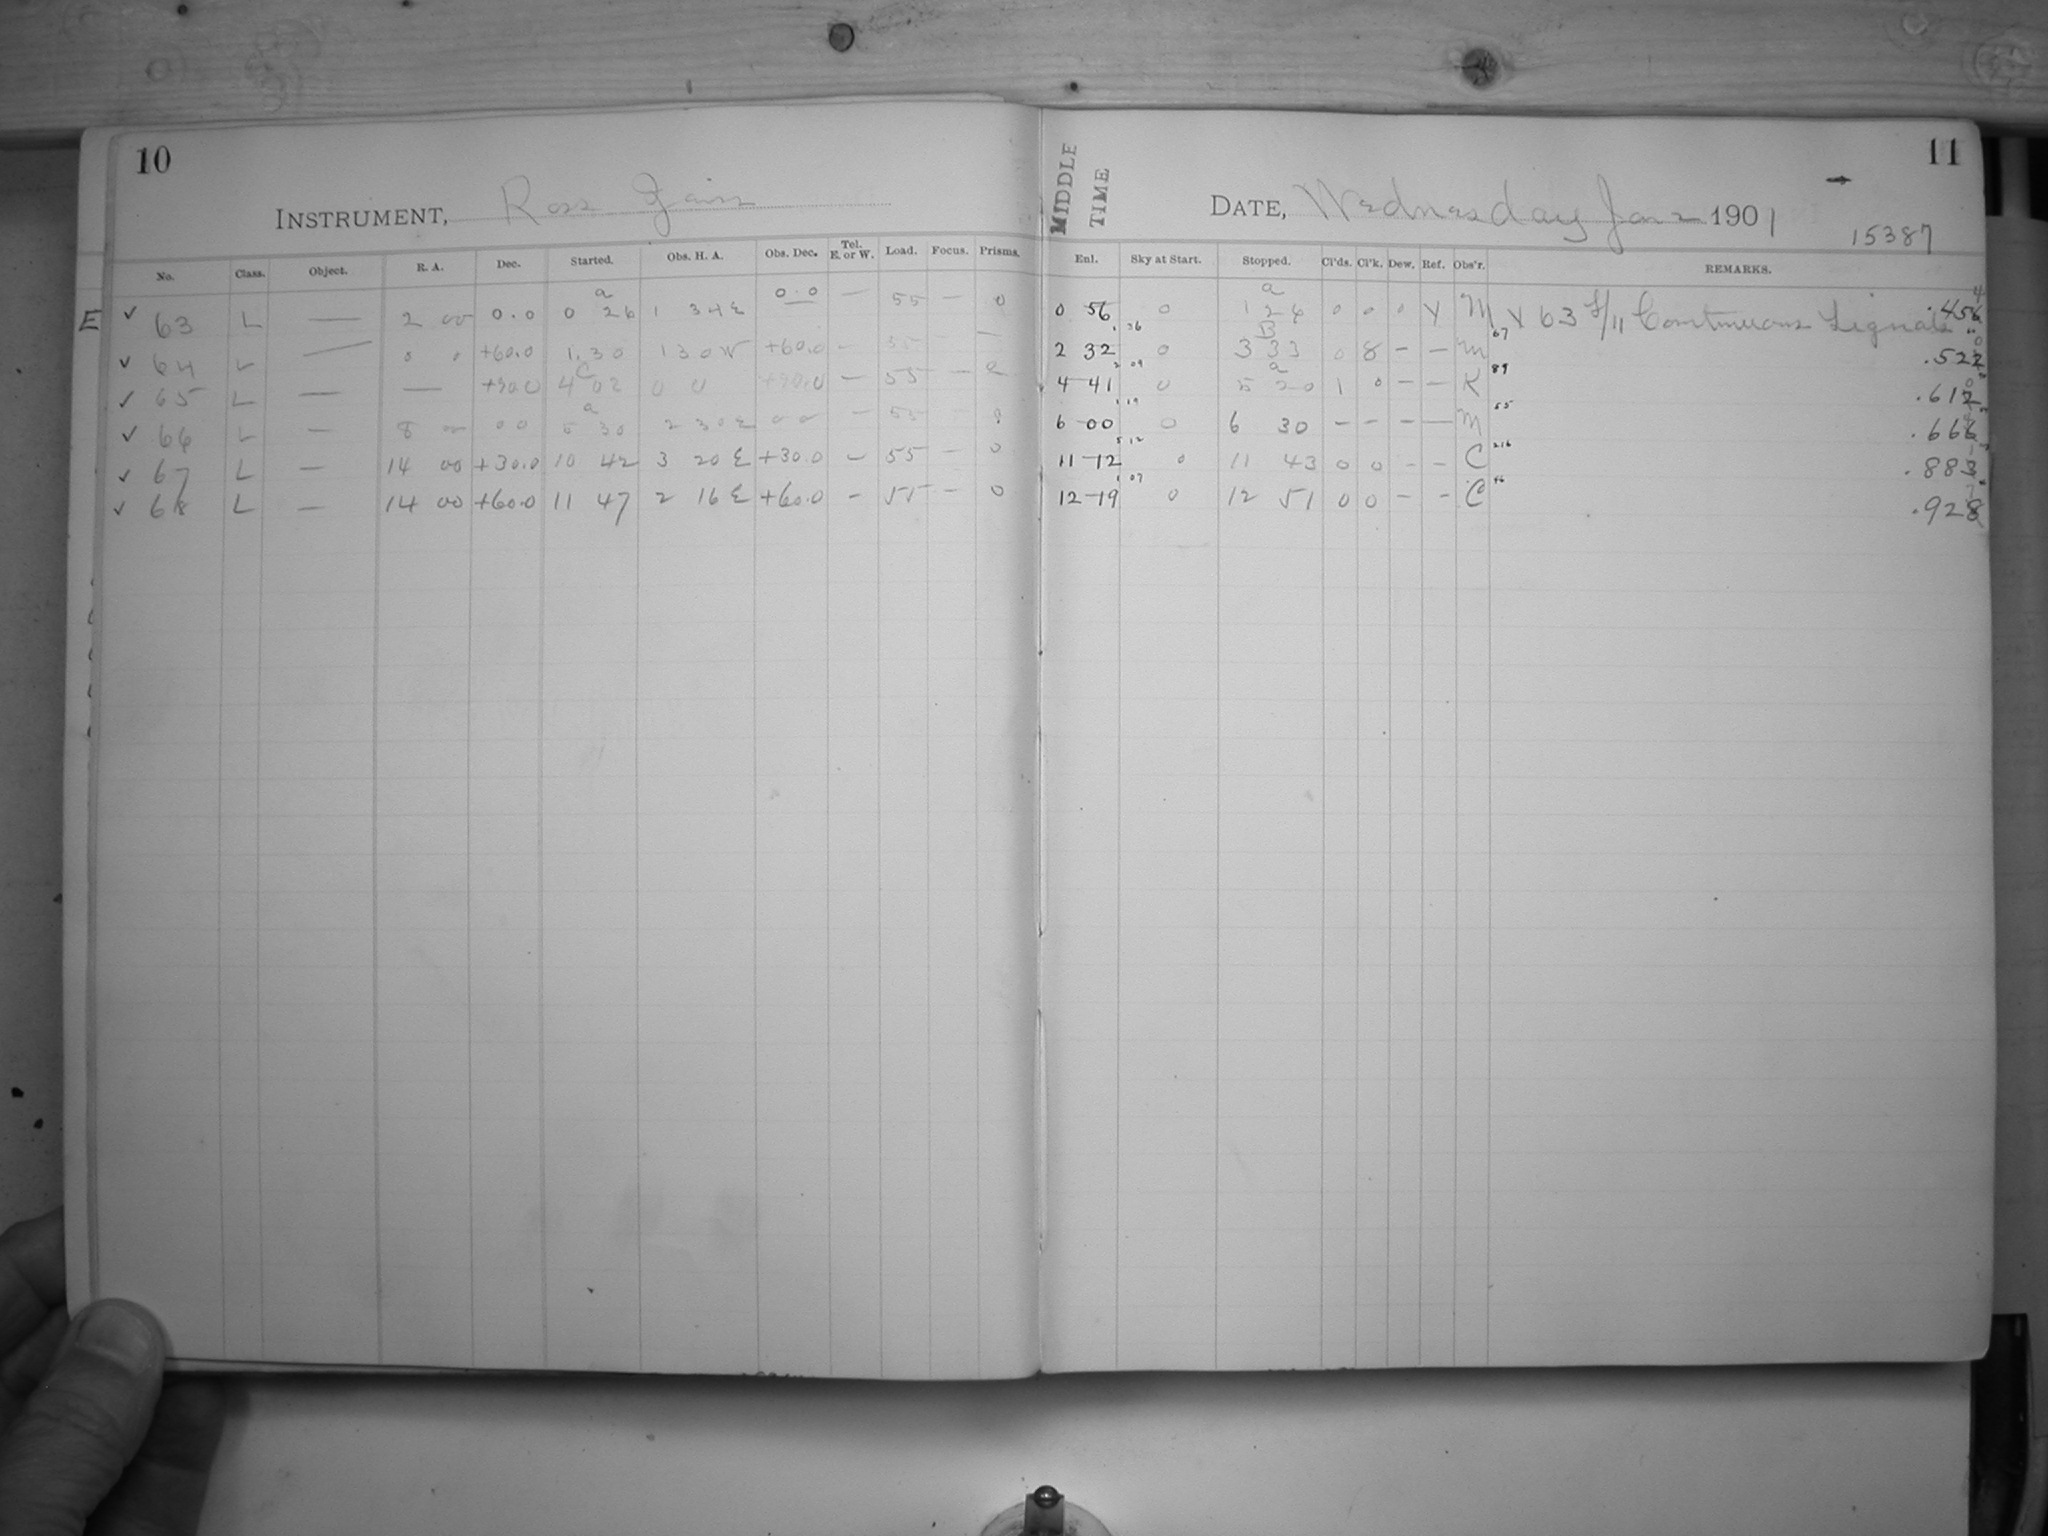 10
INSTRUMENT, Ross
MIDDLE TIME
DATE, Wednesday Jan 2 1901
11
15387
No. Class. Object. R. A. Dec. Started. Obs. H. A. Obs. Dec. Tel. E. or W. Load. Focus. Prisms. Enl. Sky at Start. Stopped. Cl'ds. Cl'k. Dew. Ref. Obs'r. REMARKS.
E ✓ 63 L — 2 00 0.0 a 0 26 1 34 E 0.0 — 55 — 0 0 56 0 a 1 26 0 0 0 X M X 63 Continuous Signals .456
✓ 64 L — 0 0 +60.0 1.30 1 30 W +60.0 — 55 — 2 32 1 36 0 B 3 33 0 8 — — M 67 .522
✓ 65 L — — +90.0 C 4 02 0 0 +90.0 — 55 — 4 41 2 09 0 a 5 20 1 0 — — K 89 .612
✓ 66 L — 8 00 00 a 5 30 2 30 E 00 — 55 6 00 1 19 0 6 30 — — — — M 55 .666
✓ 67 L — 14 00 +30.0 10 42 3 20 E +30.0 — 55 — 0 11 12 5 12 0 11 43 0 0 — — C 216 .883
✓ 68 L — 14 00 +60.0 11 47 2 16 E +60.0 — 55 — 0 12 19 1 07 0 12 51 0 0 — — C 46 .928